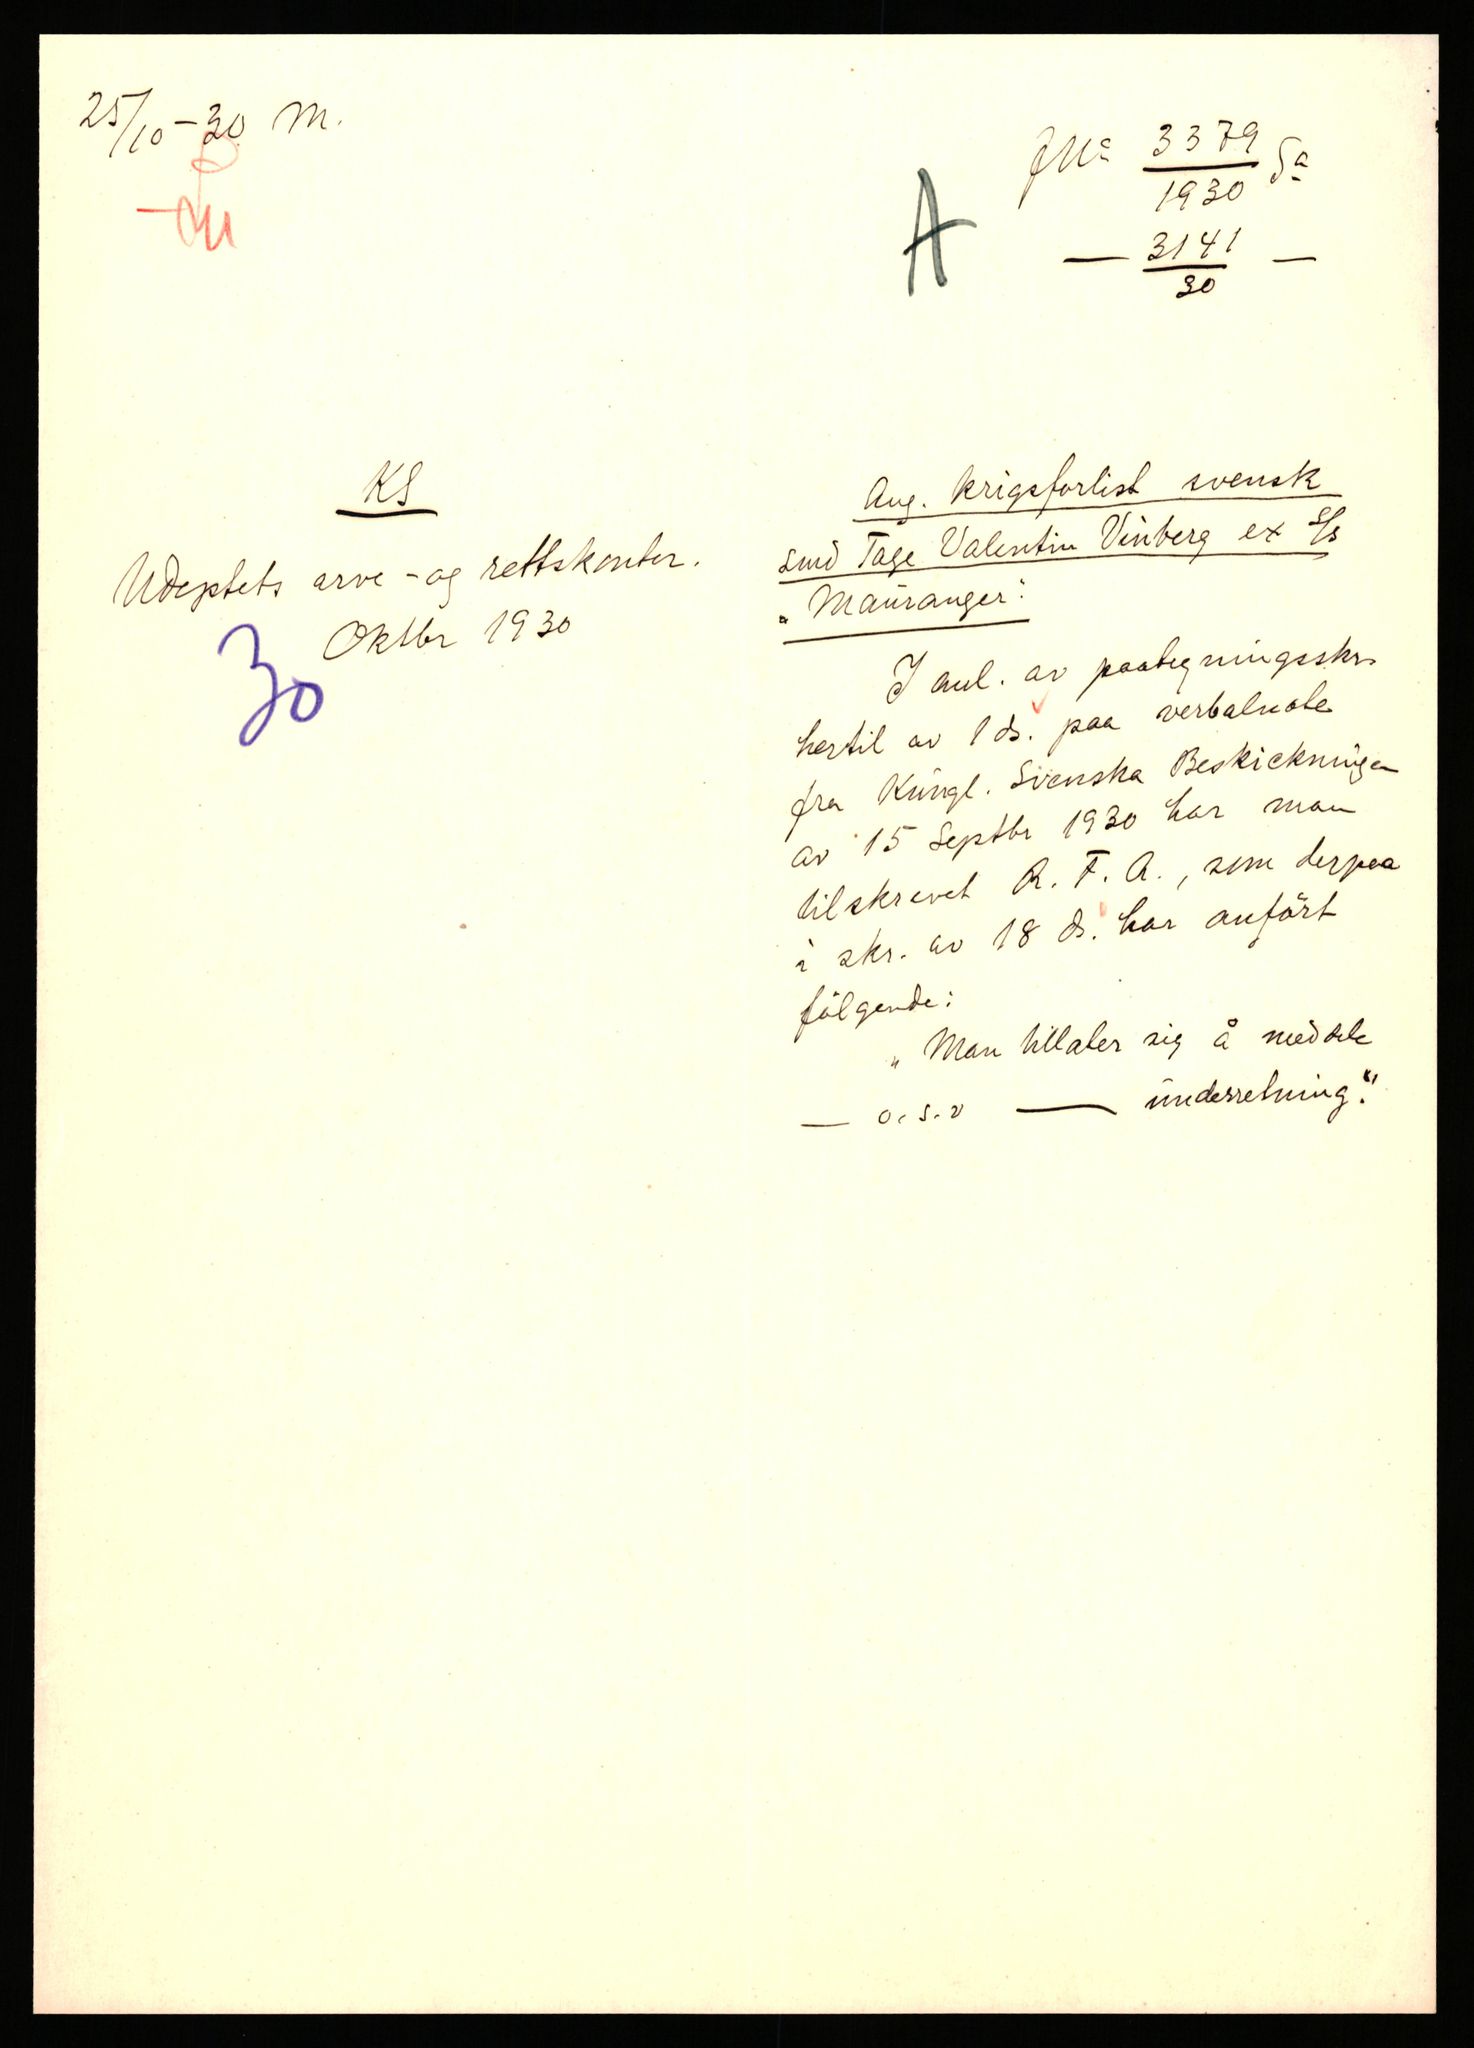 25/10-30 M.
JNo 3379/1930 Sa
— 3141/30 —
A
KS
Udeptets arve- og rettskontor.
Oktbr 1930
30
Ang. krigsforlist svensk
smd Tage Valentin Vinberg ex S/s
"Mauranger".
I anl. av paategningsskr.
hertil av 1 ds. paa verbalnote
fra Kungl. Svenska Beskickningen
av 15 Septbr 1930 har man
tilskrevet R. T. A., som derpaa
i skr. av 18 ds. har anført
følgende:
"Man tillater sig å meddele
— o.s.v — underretning".